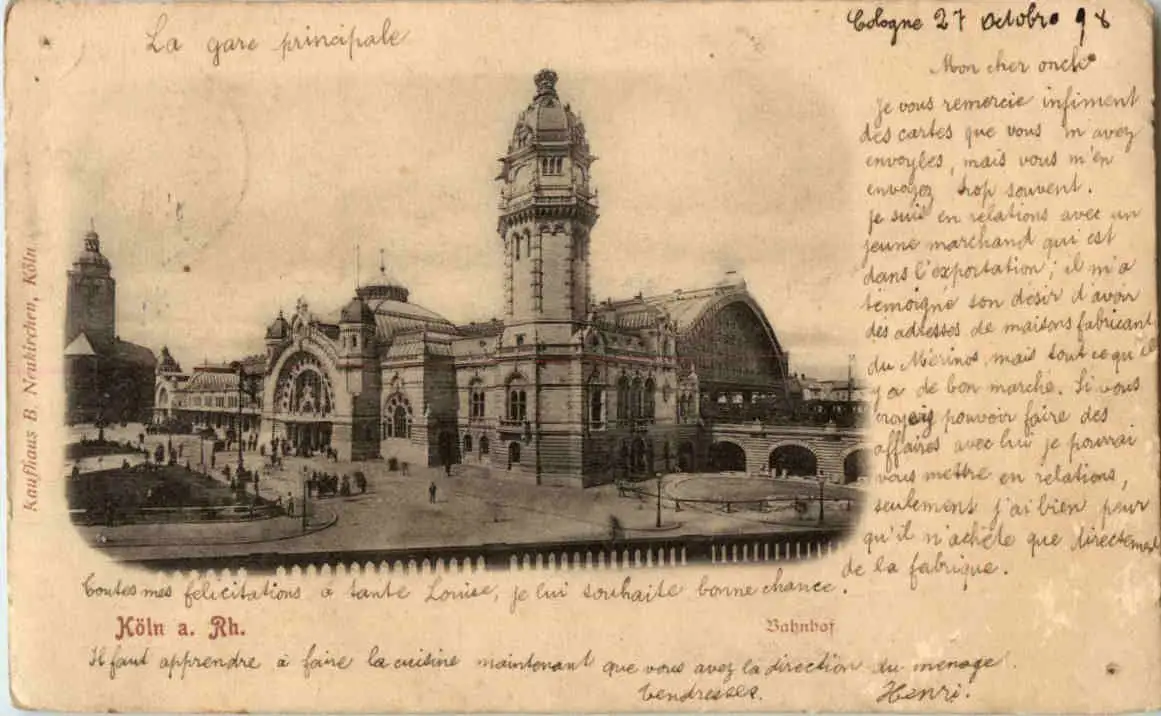 La gare principale
Cologne 27 Octobre 98
Mon cher oncle
Je vous remercie infiment
des cartes que vous m'avez
envoyées, mais vous m'en
envoyez trop souvent.
Je suis en relations avec un
jeune marchand qui est
dans l'exportation; il m'a
témoigné son désir d'avoir
des adresses de maisons fabricant
du Mérinos, mais tout ce qu'il
y a de bon marché. Si vous
croyez pouvoir faire des
affaires avec lui je pourrai
vous mettre en relations,
seulement j'ai bien peur
qu'il n'achète que directement
de la fabrique.
Toutes mes félicitations à tante Louise, je lui souhaite bonne chance.
Köln a. Rh.
Bahnhof
Il faut apprendre à faire la cuisine maintenant que vous avez la direction du menage.
Tendresses. Henri.
Kaufhaus B. Neukirchen, Köln